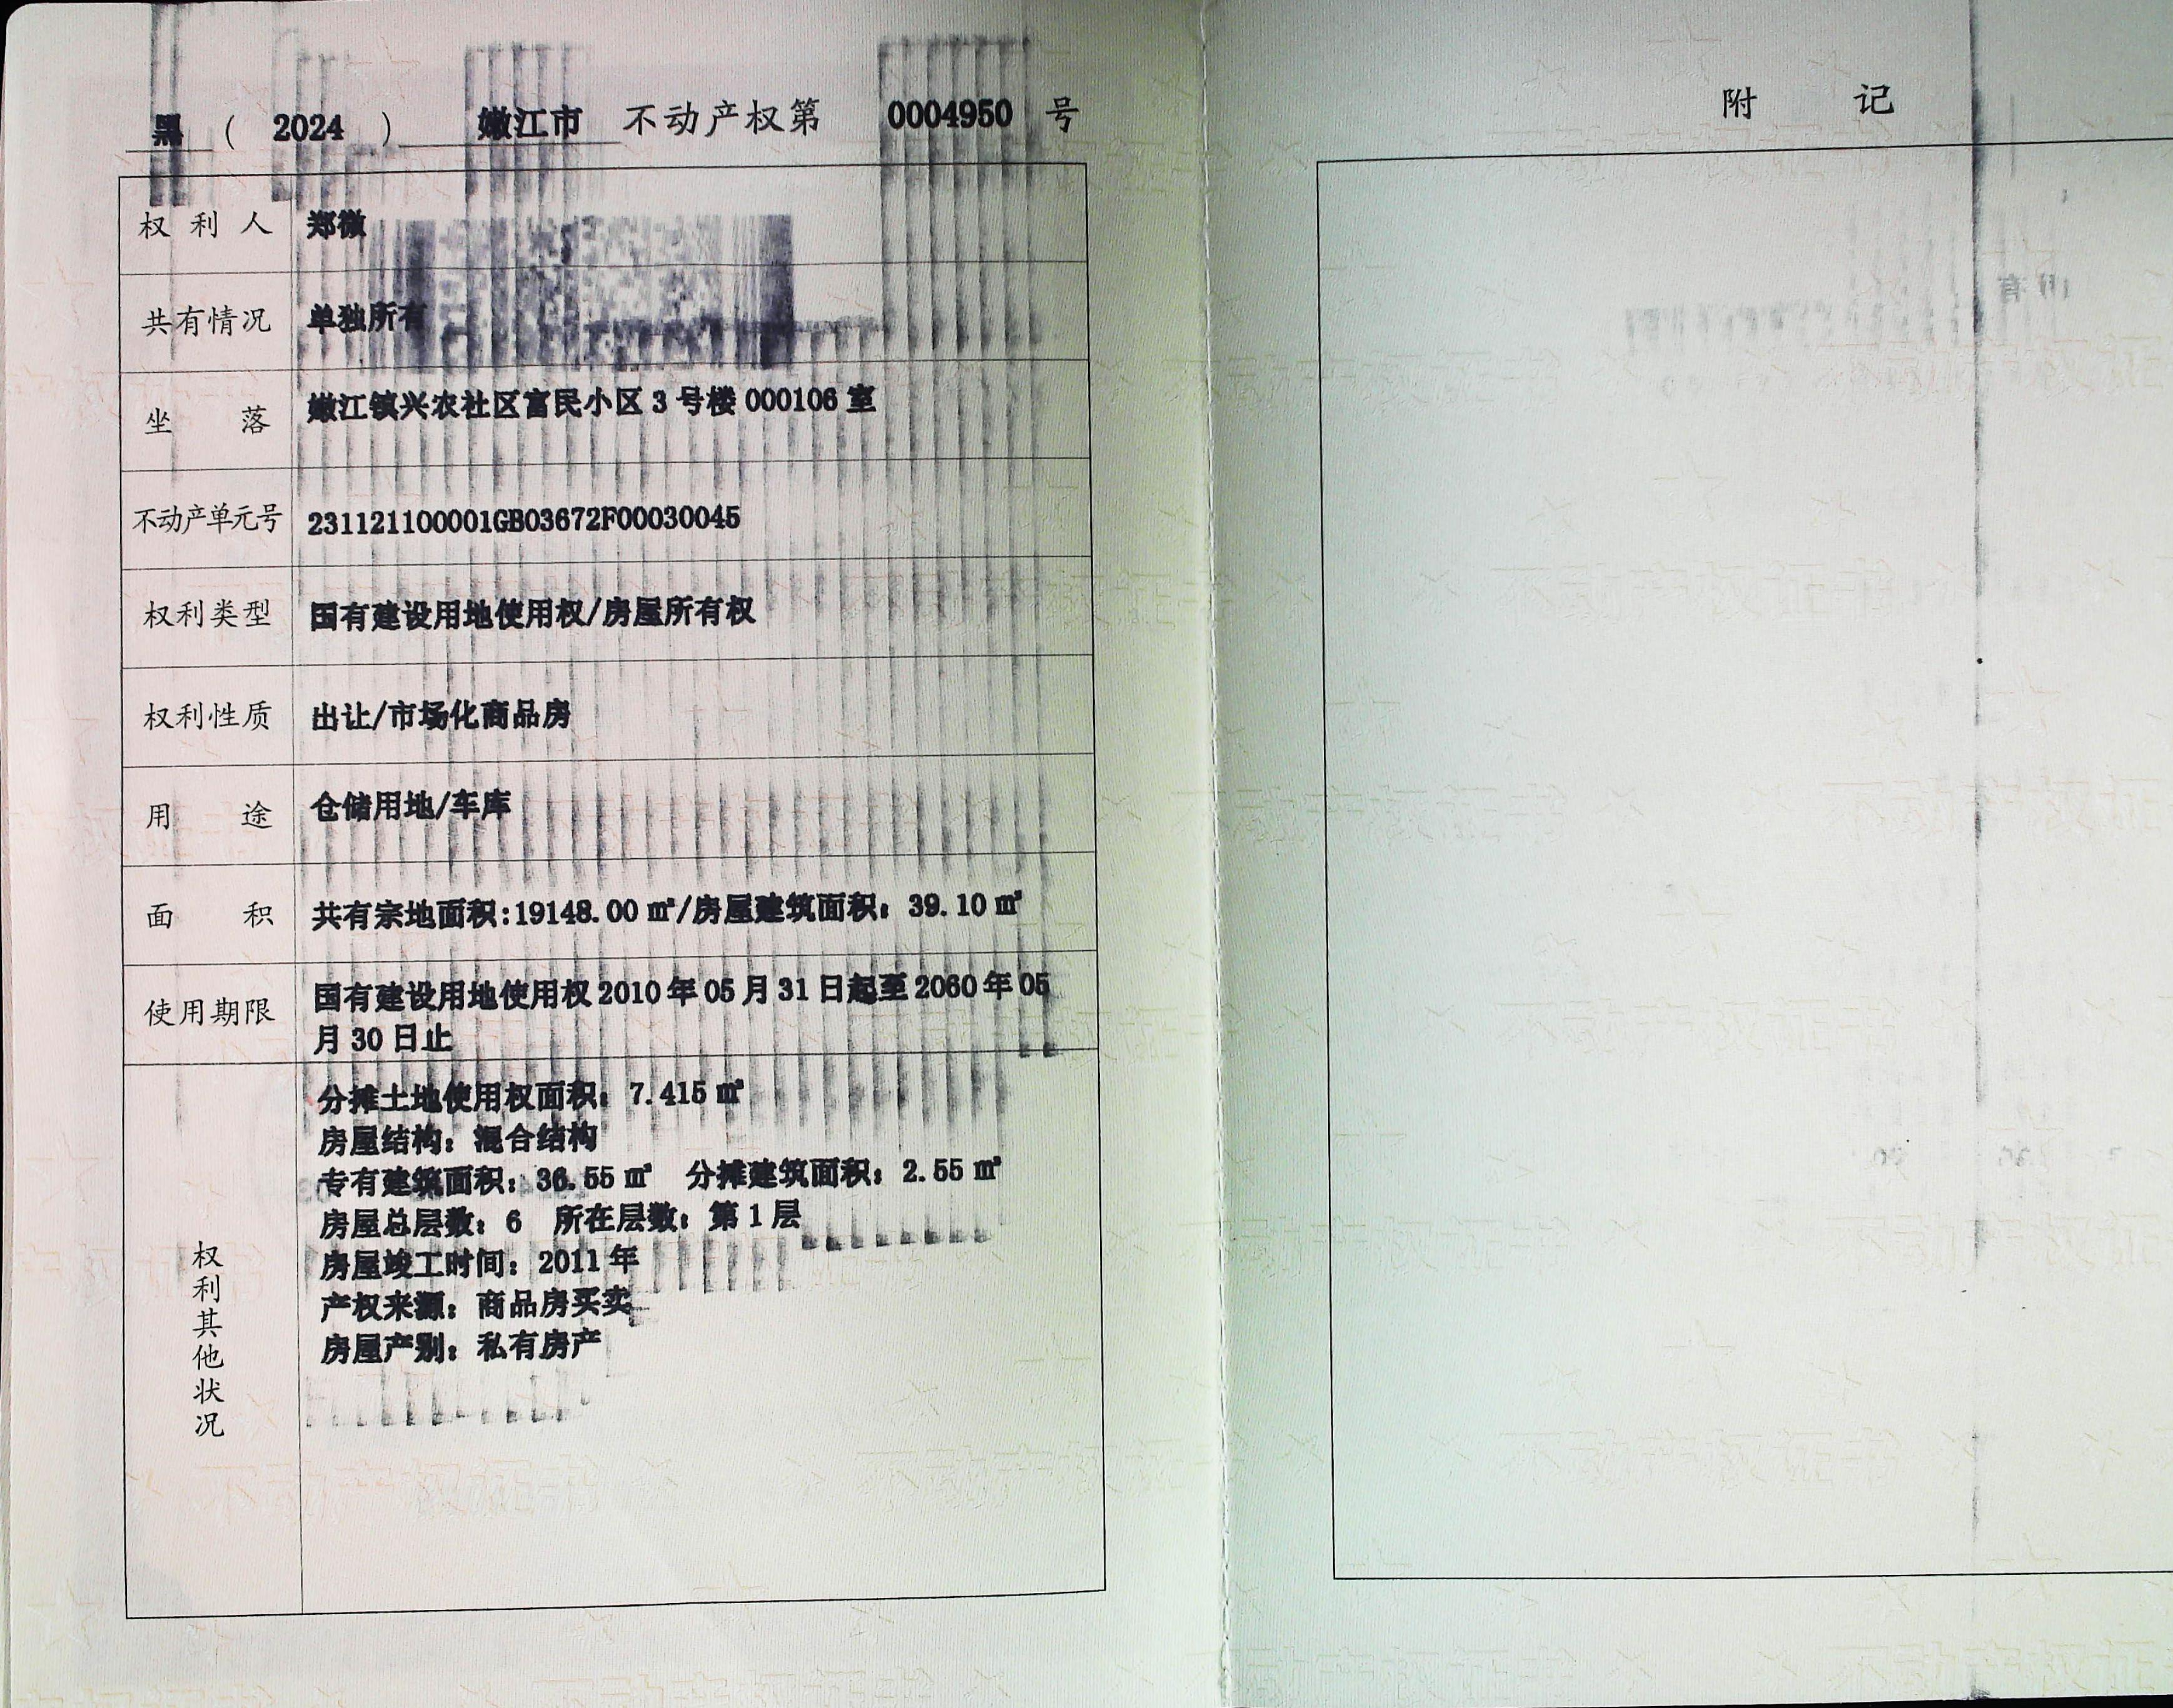 黑（ 2024 ） 嫩江市 不动产权第 0004950 号
权利人 郑微
共有情况 单独所有
坐落 嫩江镇兴农社区富民小区 3 号楼 000106 室
不动产单元号 231121100001GB03672F00030045
权利类型 国有建设用地使用权/房屋所有权
权利性质 出让/市场化商品房
用途 仓储用地/车库
面积 共有宗地面积:19148.00 ㎡/房屋建筑面积：39.10 ㎡
使用期限 国有建设用地使用权 2010 年 05 月 31 日起至 2060 年 05
月 30 日止
权利其他状况
分摊土地使用权面积：7.415 ㎡
房屋结构：混合结构
专有建筑面积：36.55 ㎡ 分摊建筑面积：2.55 ㎡
房屋总层数：6 所在层数：第 1 层
房屋竣工时间：2011 年
产权来源：商品房买卖
房屋产别：私有房产
附记